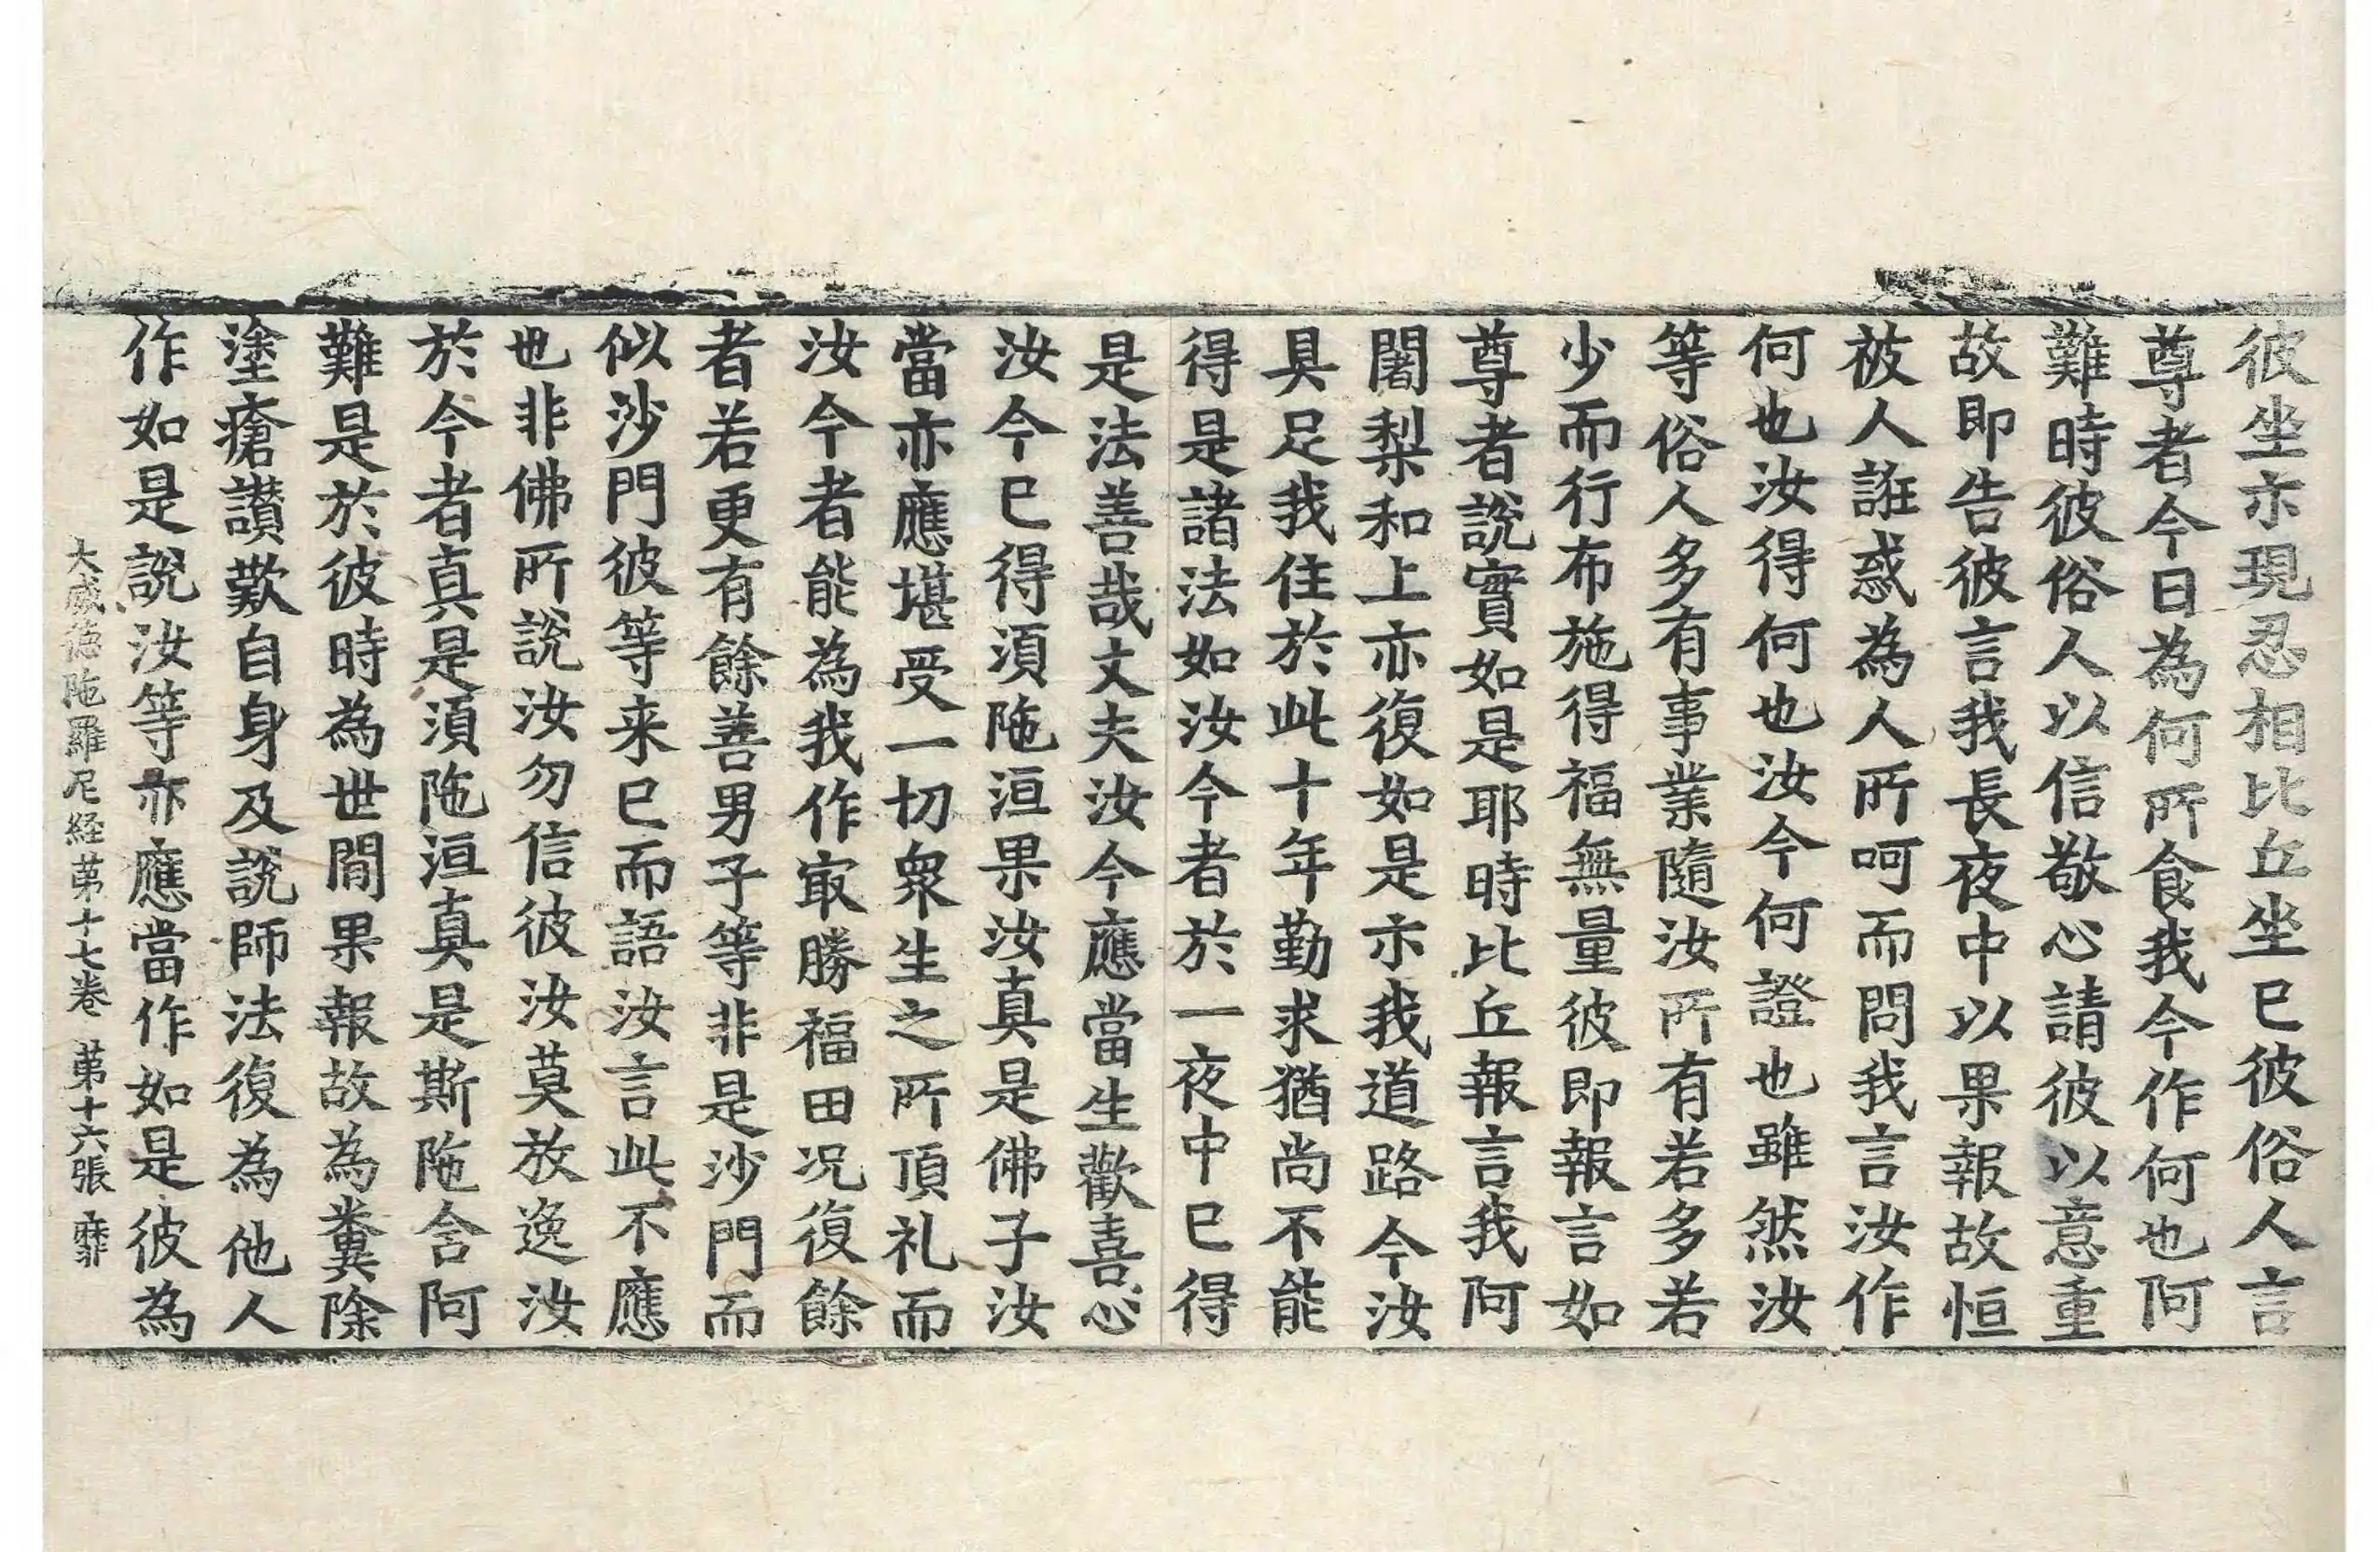 彼坐亦現忍相比丘坐已彼俗人言
尊者今日為何所食我今作何也阿
難時彼俗人以信敬心請彼以意重
故即告彼言我長夜中以果報故恒
被人誑惑為人所呵而問我言汝作
何也汝得何也汝今何證也雖然汝
等俗人多有事業隨汝所有若多若
少而行布施得福無量彼即報言如
尊者說實如是耶時比丘報言我阿
闍梨和上亦復如是亦我道路今汝
具足我住於此十年勤求猶尚不能
得是諸法如汝今者於一夜中已得
是法善哉丈夫汝今應當生歡喜心
汝今已得須陁洹果汝真是佛子汝
當亦應堪受一切衆生之所頂礼而
汝今者能為我作㝡勝福田况復餘
者若更有餘善男子等非是沙門而
似沙門彼等来已而語汝言此不應
也非佛所說汝勿信彼汝莫放逸汝
於今者真是須陁洹真是斯陁含阿
難是於彼時為世間果報故為糞除
塗瘡讃歎自身及説師法復為他人
作如是說汝等亦應當作如是彼為
大威德陁羅尼経苐十七卷 苐十六張 靡